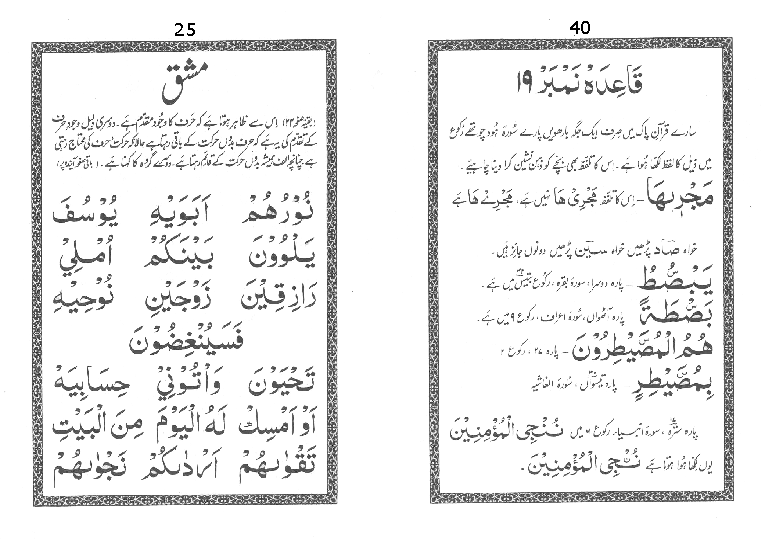 25
مشق
(بقیہ صفحہ ۲۳) اس سے ظاہر ہوتا ہے کہ حرف کا وجود مقدم ہے۔ دوسری دلیل وجود حرف
کے تقدیم کی یہ ہے کہ حرف بدوں حرکت کے باقی رہتا ہے حالانکہ حرکت حرف کی محتاج رہتی
ہے چنانچہ الف ہمیشہ بدوں حرکت کے قائم رہتا ہے
نُوْرُهُمْ اَبَوَيْهِ يُوْسُفَ
يَلْوٗنَ بَيْنَكُمْ اُمْلِيْ
رَازِقِيْنَ زَوْجَيْنِ نُوْحِيْهِ
فَسَيُنْغِضُوْنَ
تَحْيَوْنَ وَاْتُوْنِيْ حِسَابِيَهْ
اَوْ اَمْسِكْ لَهُ الْيَوْمَ مِنَ الْبَيْتِ
تَقْوٰىهُمْ اَرْدٰىكُمْ نَجْوٰىهُمْ
40
قَاعِدَهْ نَمْبَرْ ۱۹
سارے قرآن پاک میں صرف ایک جگہ بارھویں پارے سورۂ ہُود چوتھے رکوع
میں ذیل کا لفظ لکھا ہوا ہے۔ اس کا تلفظ بھی بچے کو ذہن نشین کرا دینا چاہئے۔
مَجْرٖىهَا – اس کا تلفظ مَجْرِیْ هَا نہیں ہے، مَجْرِےْ هَا ہے
خواہ صاد پڑھیں خواہ سین پڑھیں دونوں جائز ہیں۔
يَبْصُۜطُ – پارہ دوسرا، سورۂ بقرہ، رکوع میں ہے۔
بَصْۜطَةً پارہ آٹھواں، سورۂ اعراف، رکوع ۹ میں ہے۔
هُمُ الْمُصَۜيْطِرُوْنَ – پارہ ۲۷، رکوع ۲
بِمُصَۜيْطِرٍ پارہ تیسواں، سورۂ الغاشیہ
پارہ سترہ، سورۂ انبیاء، رکوع ۶ میں نُـنْجِی الْمُؤْمِنِيْنَ
یوں لکھا ہوا ہوتا ہے نُـنْجِی الْمُؤْمِنِيْنَ۔